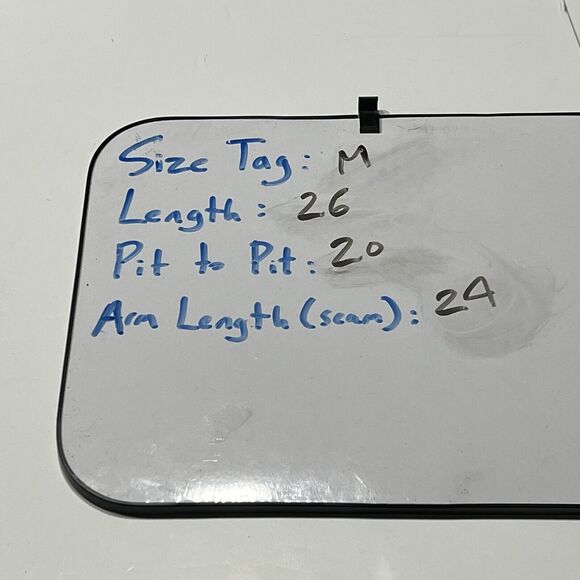 Size Tag: M
Length: 26
Pit to Pit: 20
Arm Length (seam): 24